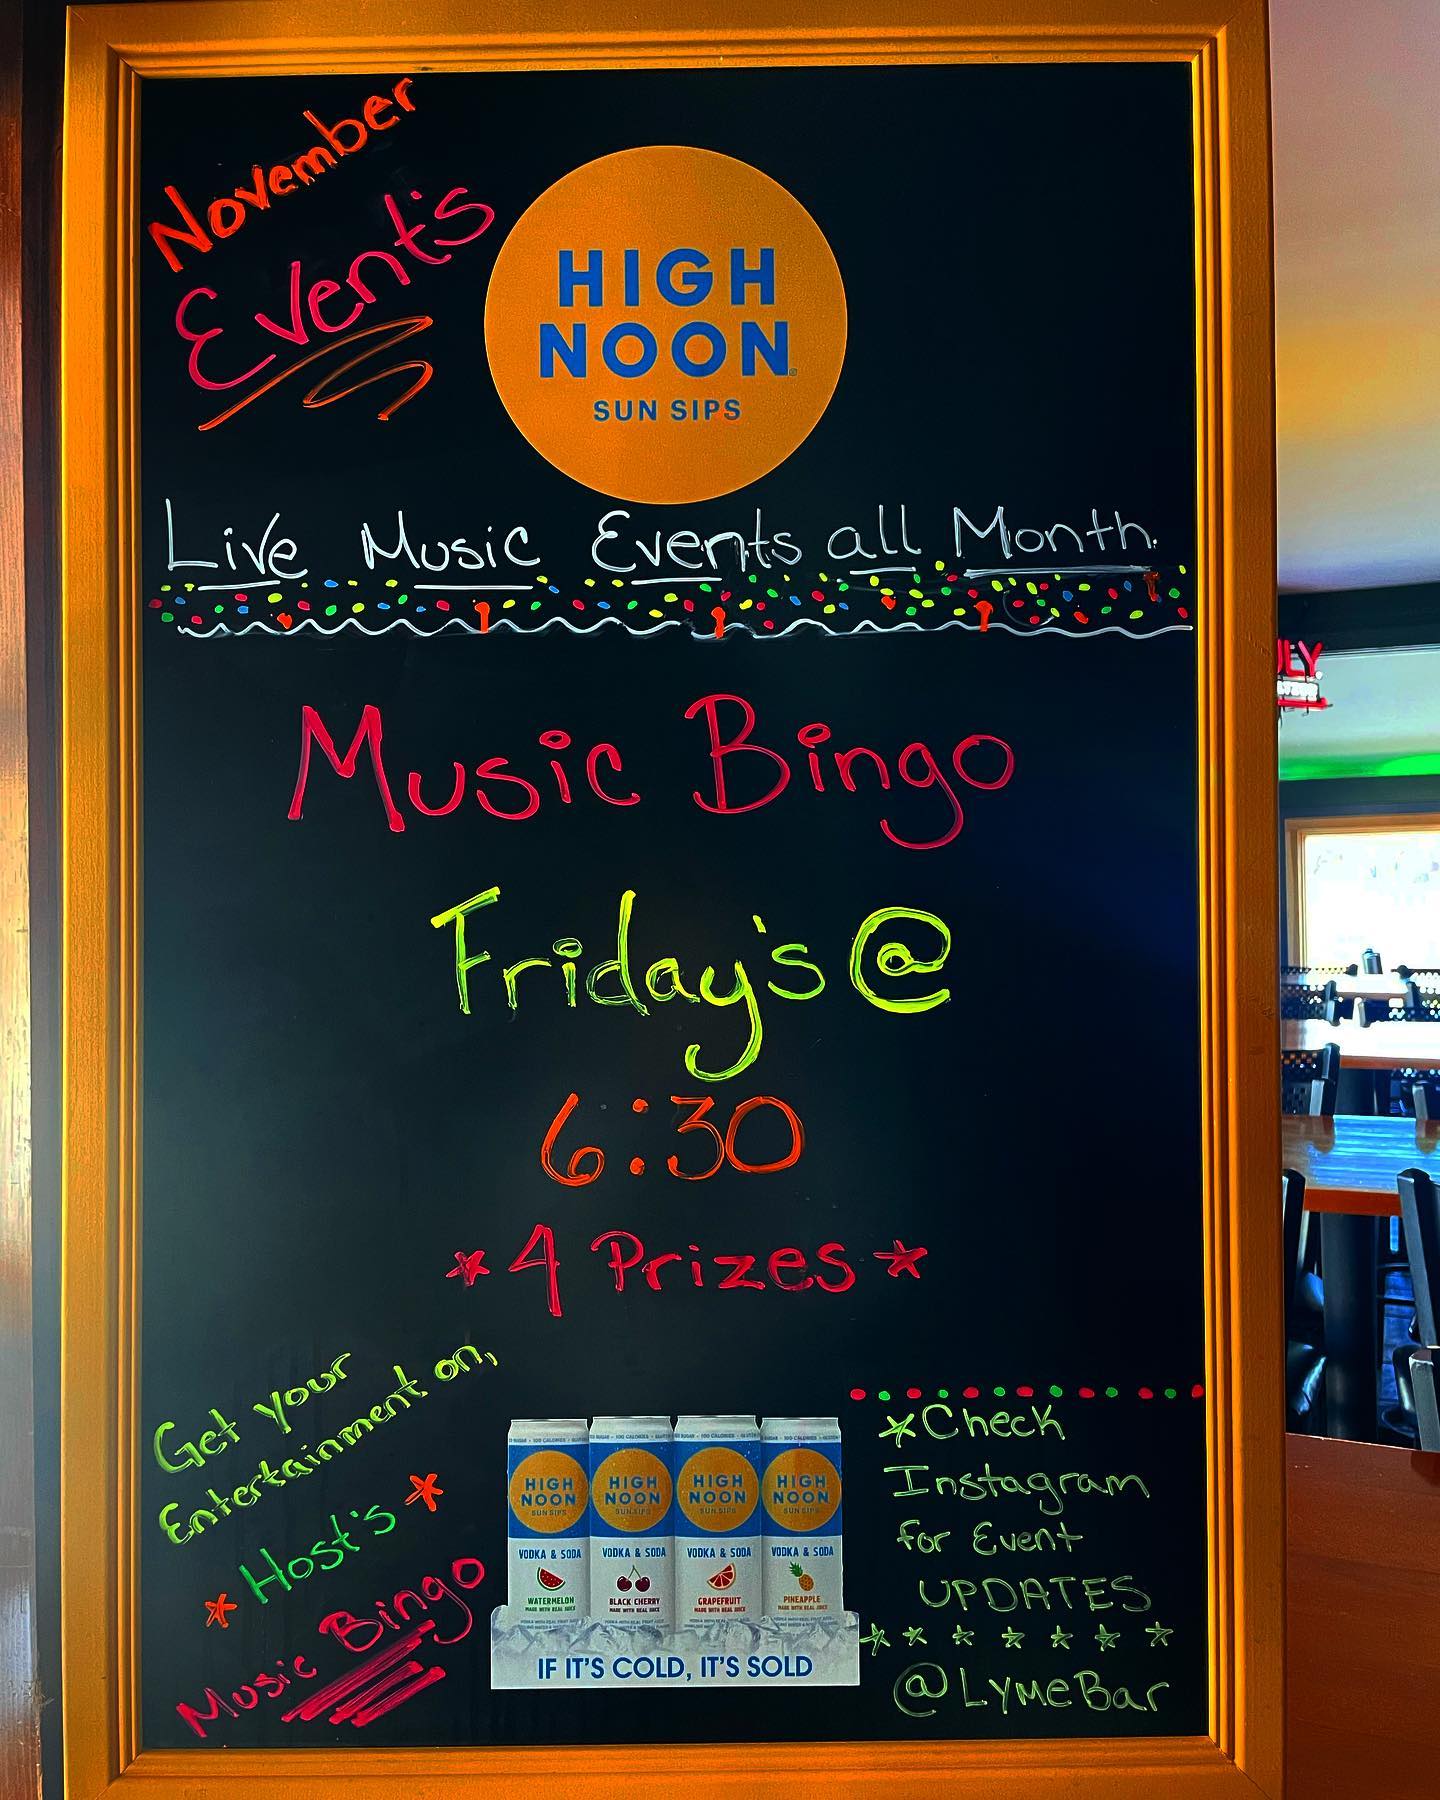 November
Event's
HIGH
NOON
SUN SIPS
Live Music Events all Month
Music Bingo
Friday's @
6:30
*4 Prizes*
Get your
Entertainment on,
*Host's*
Music Bingo
HIGH NOON SUN SIPS VODKA & SODA WATERMELON MADE WITH REAL JUICE
HIGH NOON SUN SIPS VODKA & SODA BLACK CHERRY MADE WITH REAL JUICE
HIGH NOON SUN SIPS VODKA & SODA GRAPEFRUIT MADE WITH REAL JUICE
HIGH NOON SUN SIPS VODKA & SODA PINEAPPLE MADE WITH REAL JUICE
IF IT'S COLD, IT'S SOLD
*Check
Instagram
for Event
UPDATES
* * * * * * *
@LymeBar